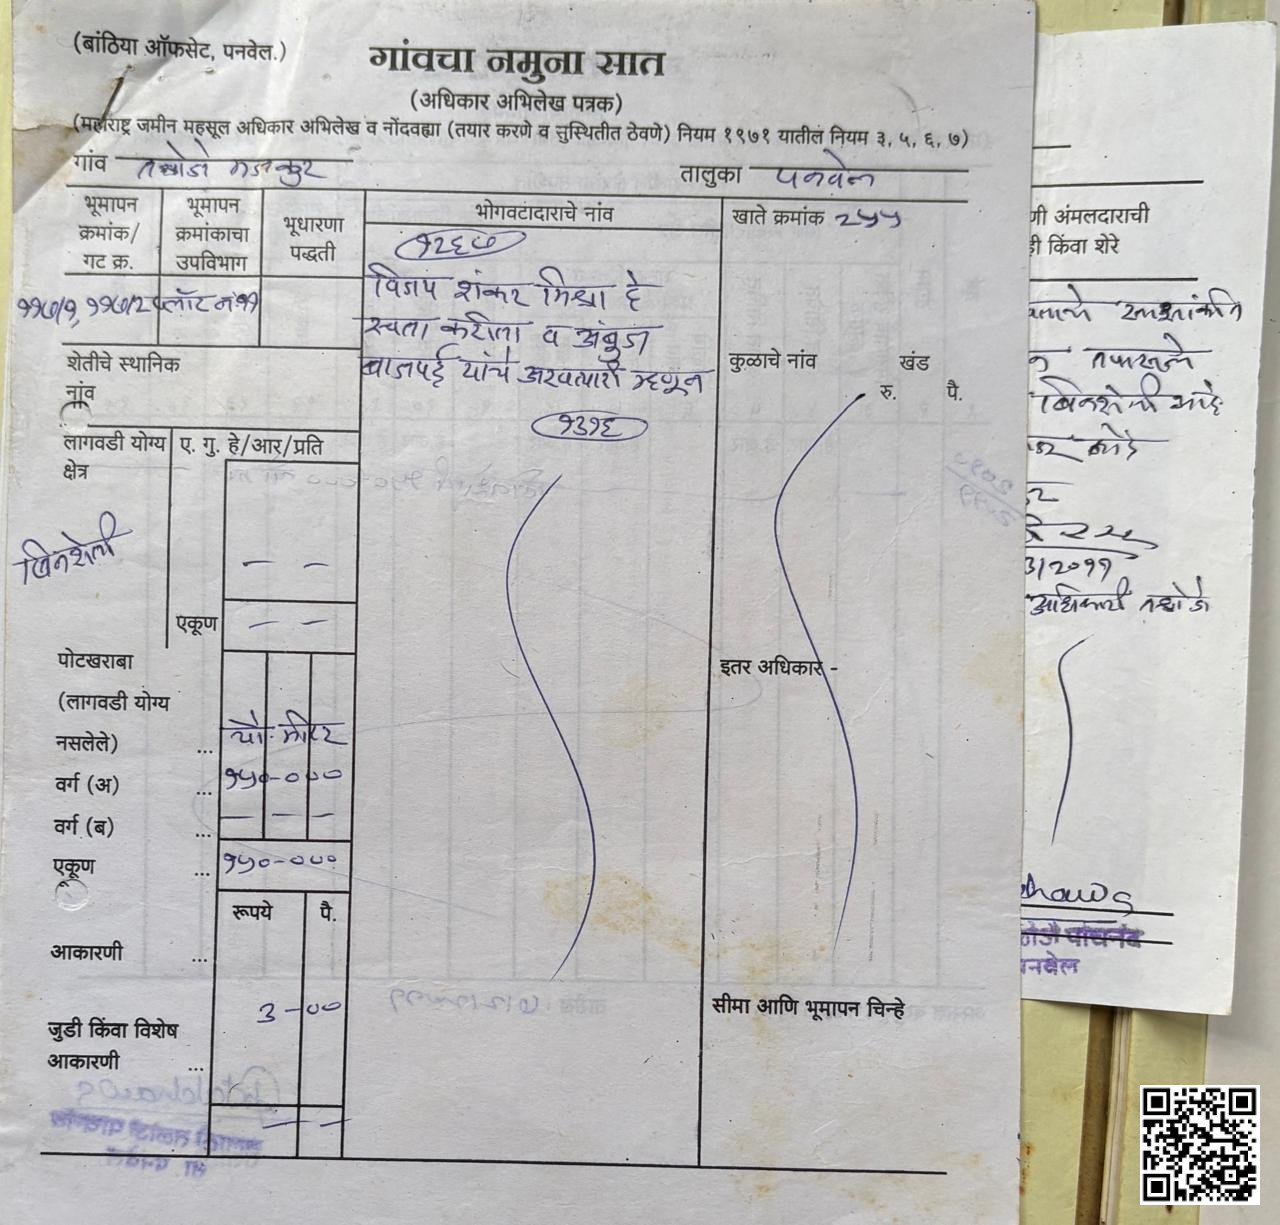 (बांठिया ऑफसेट, पनवेल.)
गांवचा नमुना सात
(अधिकार अभिलेख पत्रक)
(महाराष्ट्र जमीन महसूल अधिकार अभिलेख व नोंदवह्या (तयार करणे व सुस्थितीत ठेवणे) नियम १९७१ यातील नियम ३, ५, ६, ७)
गांव तळोजे मजकुर तालुका पनवेल
भूमापन क्रमांक/ गट क्र.
भूमापन क्रमांकाचा उपविभाग
भूधारणा पद्धती
भोगवटादाराचे नांव
खाते क्रमांक २५५
प्लॉट नं ११
विजय शंकर मिश्रा हे
स्वता करीता व अंबुज
बाजपई यांचे अखत्यारी म्हणून
१३१६
शेतीचे स्थानिक
नांव
कुळाचे नांव खंड
रु. पै.
लागवडी योग्य
क्षेत्र
ए. गु. हे/आर/प्रति
बिनशेती
— —
एकूण — —
पोटखराबा
(लागवडी योग्य
नसलेले) ... चौ. मीटर
वर्ग (अ) ... १५०-०००
वर्ग (ब) ... — — —
एकूण १५०-०००
इतर अधिकार -
रूपये पै.
आकारणी ...
३-००
जुडी किंवा विशेष
आकारणी ...
— —
सीमा आणि भूमापन चिन्हे
णी अंमलदाराची
ही किंवा शेरे
बिनशेती
३/२०११
अधिकारी तळोजे
नवेल